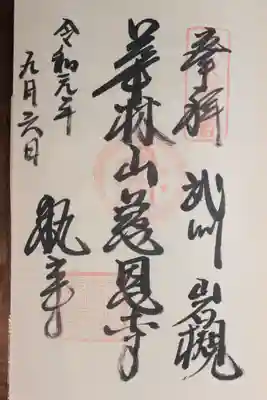 奉拝
武州 岩槻
華林山慈恩寺
執事
令和元年
九月六日